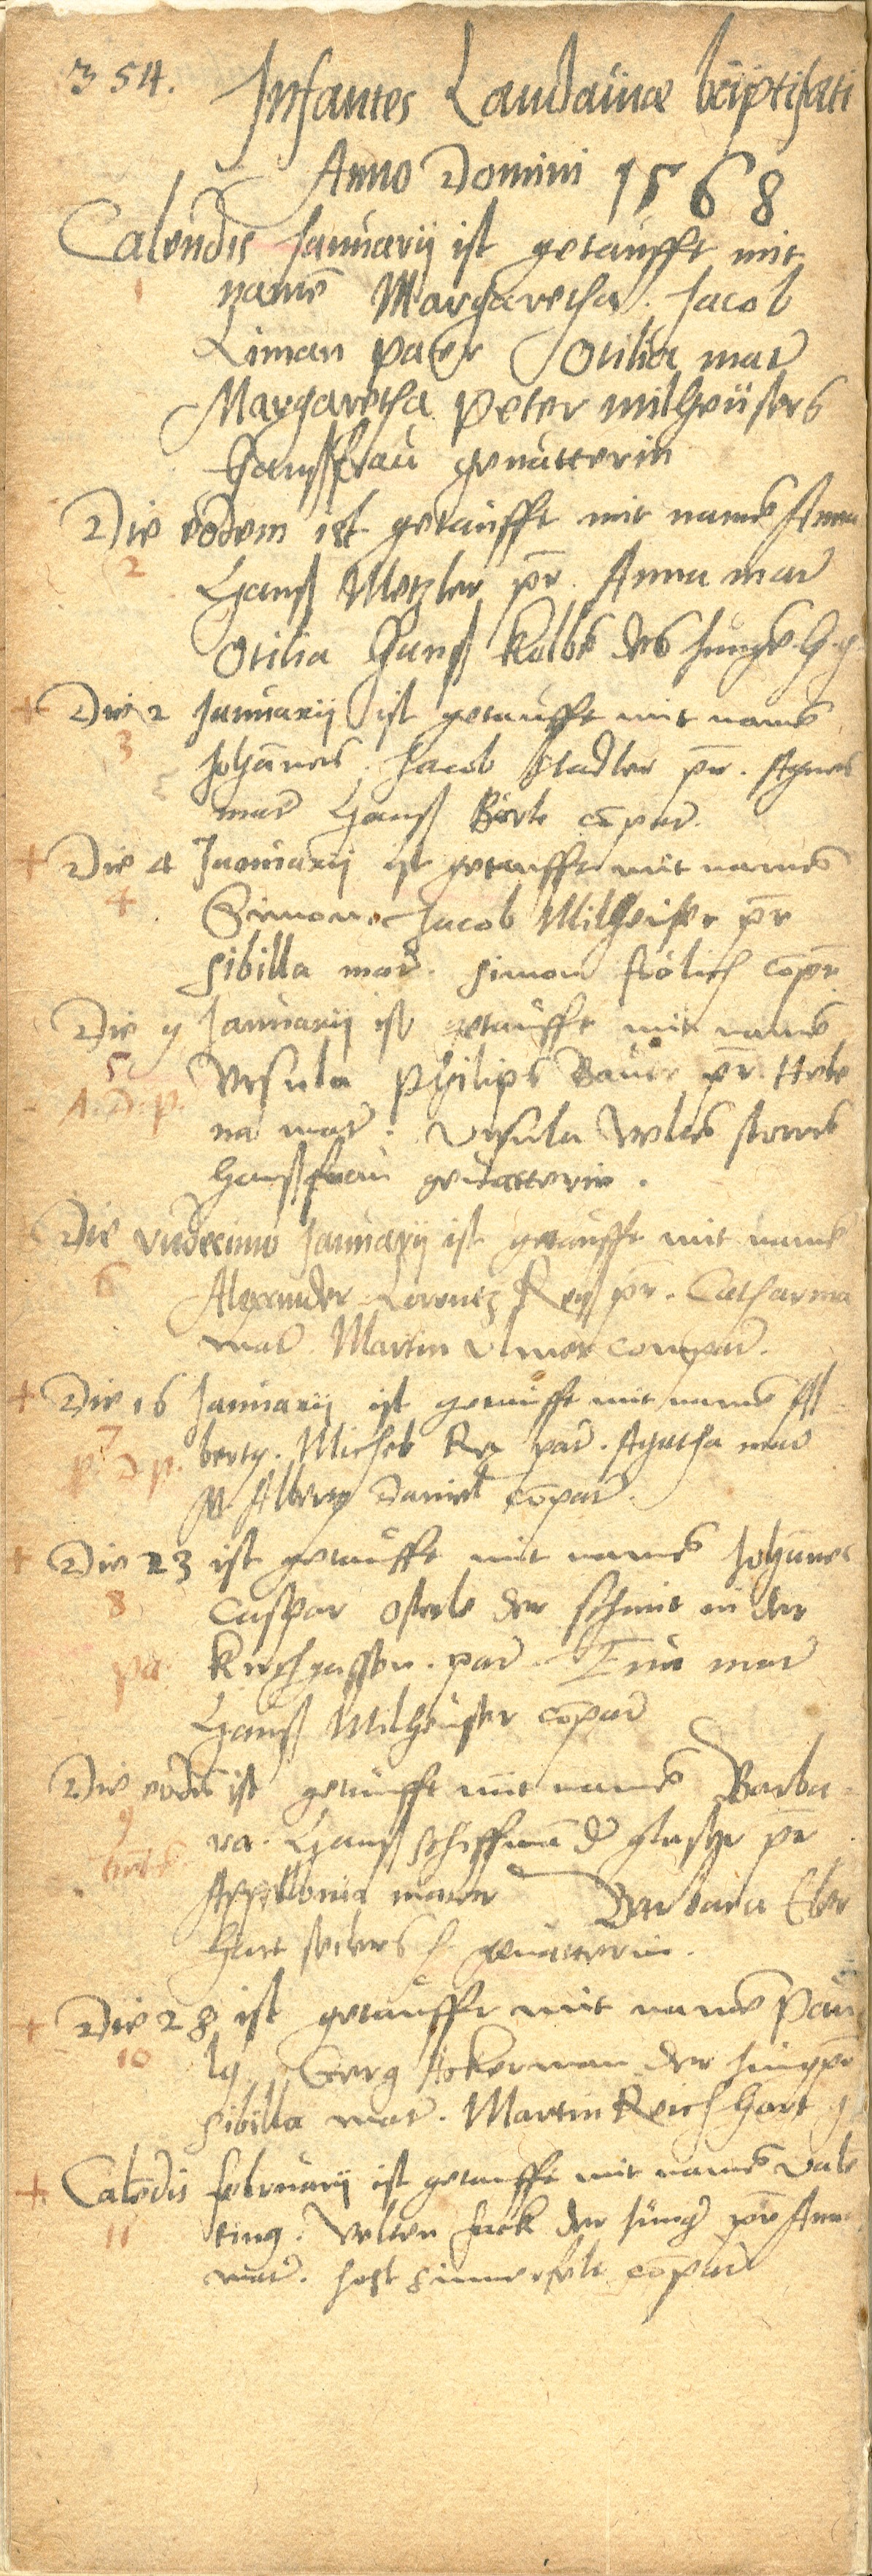 354.
Infantes Landauiae baptisati
Anno Domini 1568
Calendis Januarij ist getaufft mit
1 namẽ Margaretha. Jacob
Liman pater Otilia mať
Margaretha Peter Milheüsers
Haussfrau geuatterin
Die eodem ist getaufft mit namẽ Anna
2 Hanß Metzler pr̃. Anna mať
Otilia Hanß Kolbẽ des Jungẽ H. g.
+ Die 2 Januarij ist getaufft mit namẽ
3 Johãnes. Jacob Stadler pr̃. Agnes
mať Hanß cõpať.
+ Die 4 Januarij ist getaufft mit namẽ
4 Simon. Jacob Milheiser pr̃
Sibilla mať. Simon frölich cõpr̃
Die 9 Januarij ist getaufft mit namẽ
5 Vrsula Philips Baur pr̃. Hele
A. D. p. na mať. Vrsula
haußfrau geuatterin.
Die vndecimo Januarij ist getaufft mit namẽ
6 Alexander Lorentz Rey pr̃. Catharina
mať. Martin Vlmer compať.
+ Die 16 Januarij ist getaufft mit namẽ Al
7 bertg. Michel pať. Agatha mať
p. D p. M Albertg Daniel cõpať.
+ Die 23 ist getaufft mit namẽ Johãnes
8 Caspar Osterle der schmit in der
pa. kirchgassen. pať Eua mať
Hanß Milheuser cõpať
Die eodẽ ist getaufft mit namẽ Barba
9 ra. Hanß Schiffman d glaser pr̃
Appollonia mater Barbara Eber
hart H geuatterin.
+ Die 28 ist getaufft mit namẽ Pau
10 lg. Georg Ackerman der Jung pr̃
Sibilla mať. Martin Reichhart g
+ Calẽdis februarij ist getaufft mit namẽ Valẽ
11 ting. Velten Hack der Jung pr̃ Anna
mať. Jost cõpať